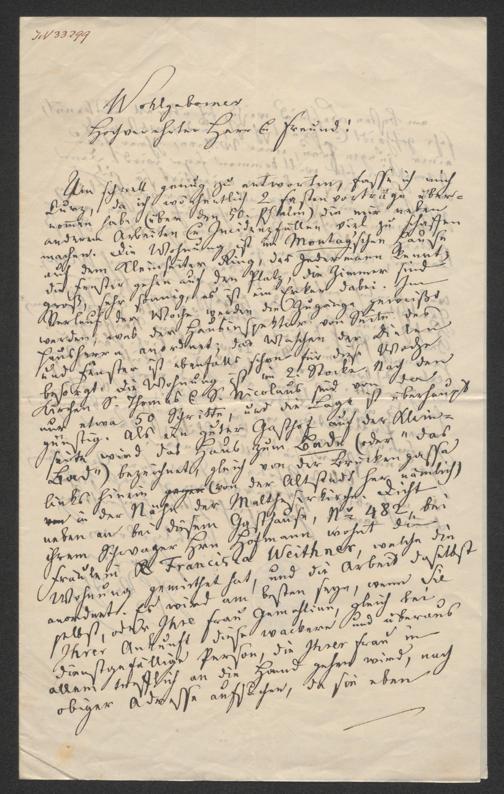 JN 33299
Wohlgeborner
Hochverehrter Herr & Freund!
Um schnell genug zu antworten, fasse ich mich
kurz, da ich wöchentlich 2 Fastenvorträge über-
nomen habe (über den 50. Psalm) die mir neben
anderen Arbeiten & Incidenzfällen viel zu schaffen
machen. Die Wohnung ist im Montagischen Hause
auf dem Kleinseitner Ring, das Jedermann kennt,
die Fenster gehen auf den Platz, die Zimmer sind
groß, sehr sonnig, es ist ein Erker dabei. Im
Verlauf der Woche werden die Zugänge geweißt
werden, was der Hausinspektor von Seite des
Hausherrn anordnet; das Waschen der Dielen
und Fenster ist ebenfalls schon für diese Woche
besorgt. Die Wohnung ist im 2 Stocke. Nach den
Kirchen S. Thomas & S. Nicolaus sind von da
nur etwa 50 Schritte, und die Lage ist überhaupt
günstig. Als ein guter Gasthof auf der Klein-
seite wird das Haus zum Bade (oder "das
Bad") bezeichnet, gleich von der Brückengasse
links hinein (von der Altstadt her nämlich)
in der Nähe der Maltheserkirche. Dicht
neben an bei diesem Gasthause, Nr 482, bei
ihrem Schwager Hrn Hofmann wohnt die
Fräulein Francisca Weithner, welche die
Wohnung gemiethet hat, und die Arbeit daselbst
anordnet. Es wird am besten sein, wenn Sie
selbst, oder Ihre Frau Gemahlin, gleich bei
Ihrer Ankunft diese wackere und überaus
dienstgefällige Person, die Ihrer Frau in
allem trefflich an die Hand gehen wird, nach
obiger Adresse aufsuchen, da sie eben